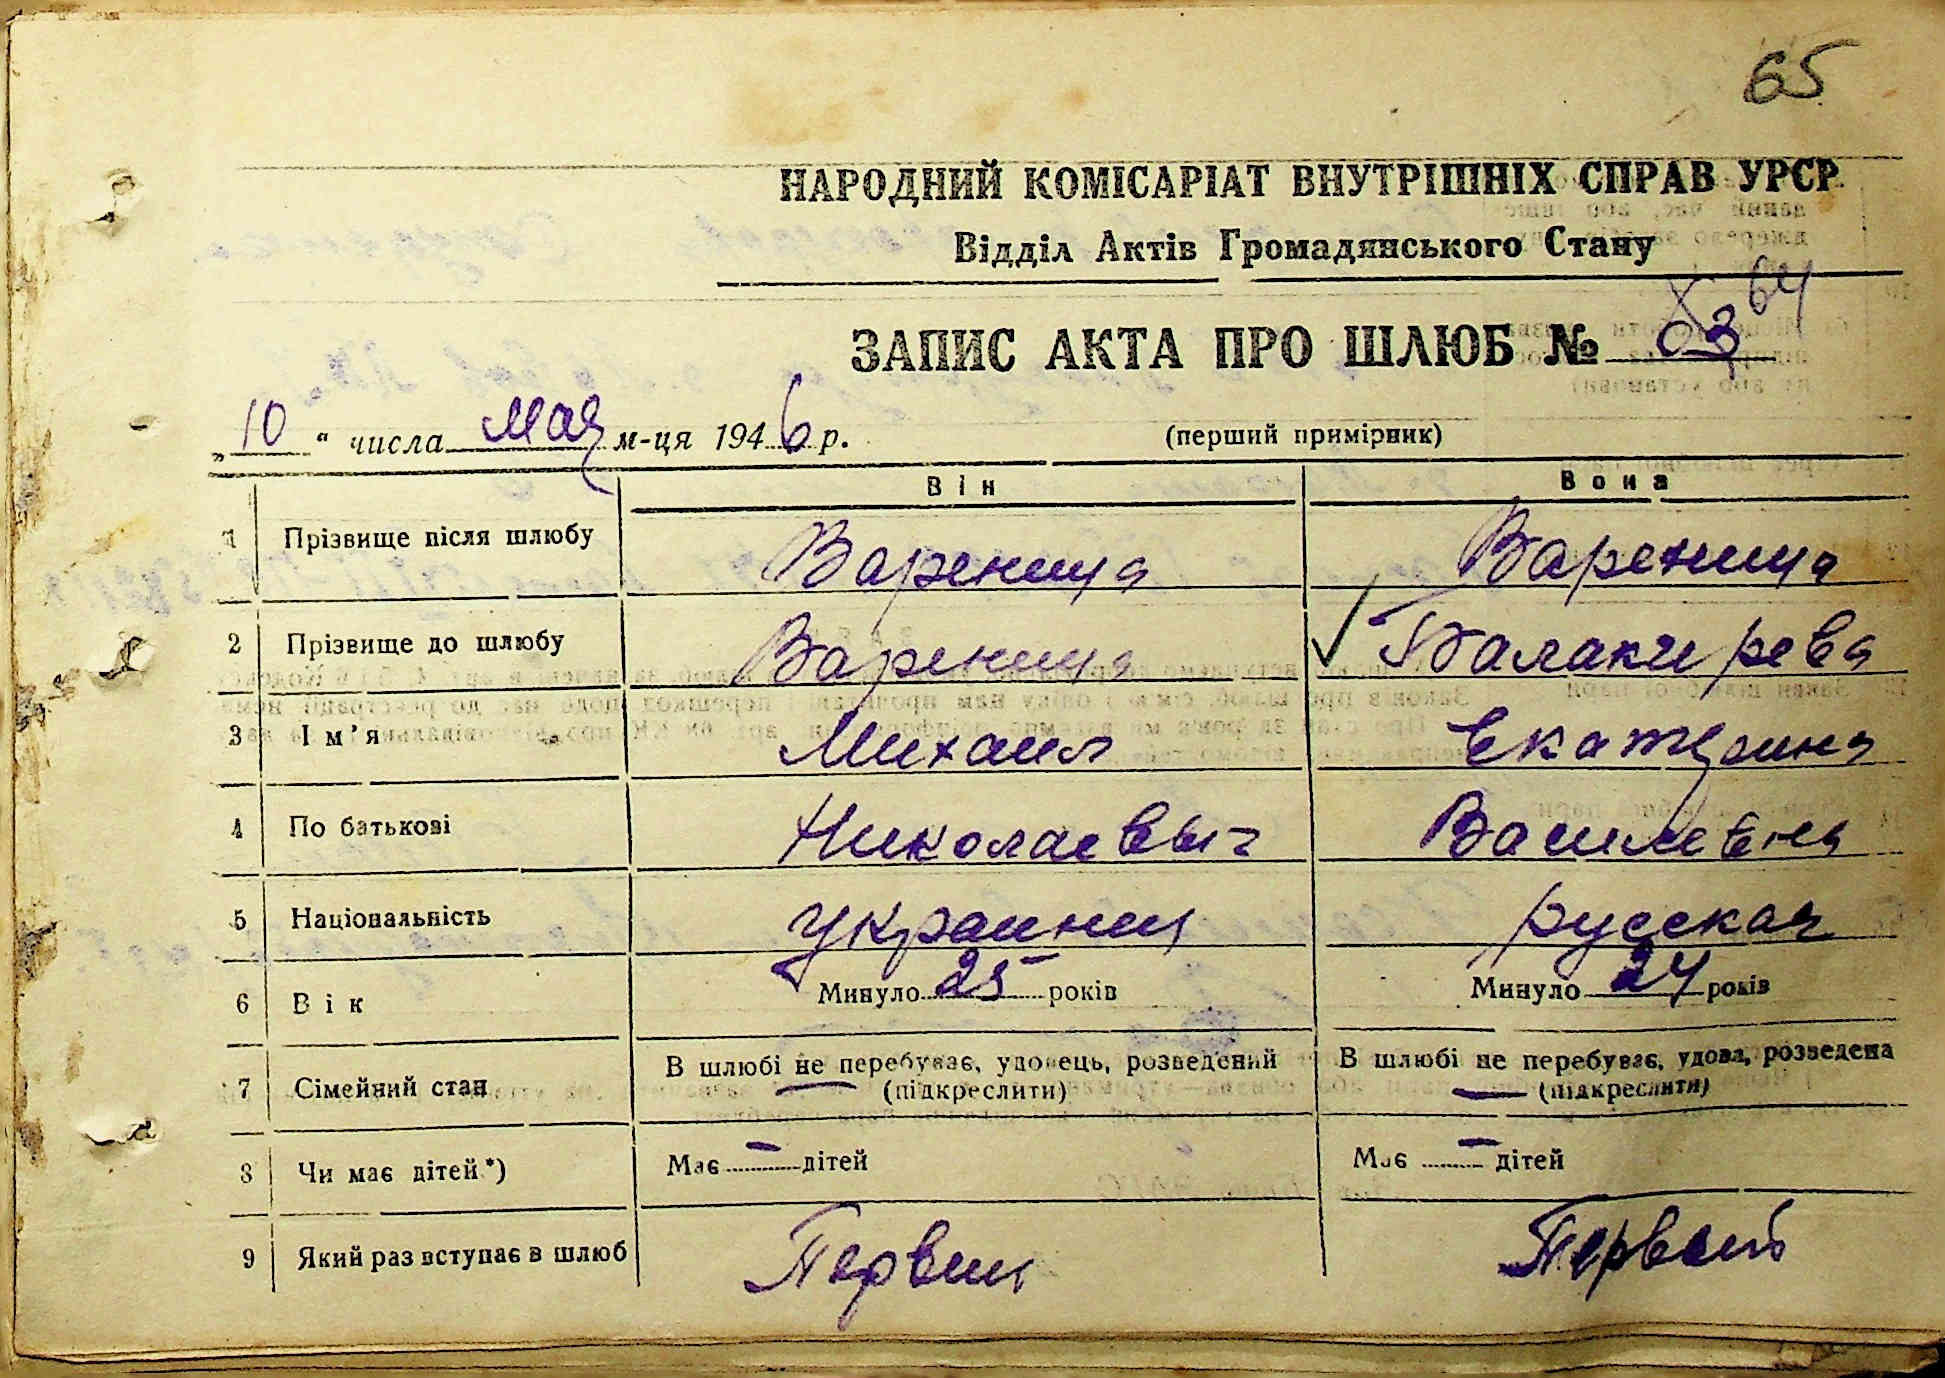 65
НАРОДНИЙ КОМІСАРІАТ ВНУТРІШНІХ СПРАВ УРСР
Відділ Актів Громадянського Стану
64
ЗАПИС АКТА ПРО ШЛЮБ № 63
„10“ числа мая м-ця 1946 р. (перший примірник)
Він Вона
1 Прізвище після шлюбу Вареница Вареница
2 Прізвище до шлюбу Вареница Балакирева
3 Ім’я Михаил Екатерина
4 По батькові Николаевич Василевна
5 Національність украинец русская
6 Вік Минуло 25 років Минуло 24 років
7 Сімейний стан В шлюбі не перебуває, удовець, розведений (підкреслити) В шлюбі не перебуває, удова, розведена (підкреслити)
8 Чи має дітей*) Має – дітей Має – дітей
9 Який раз вступає в шлюб Первый Первый